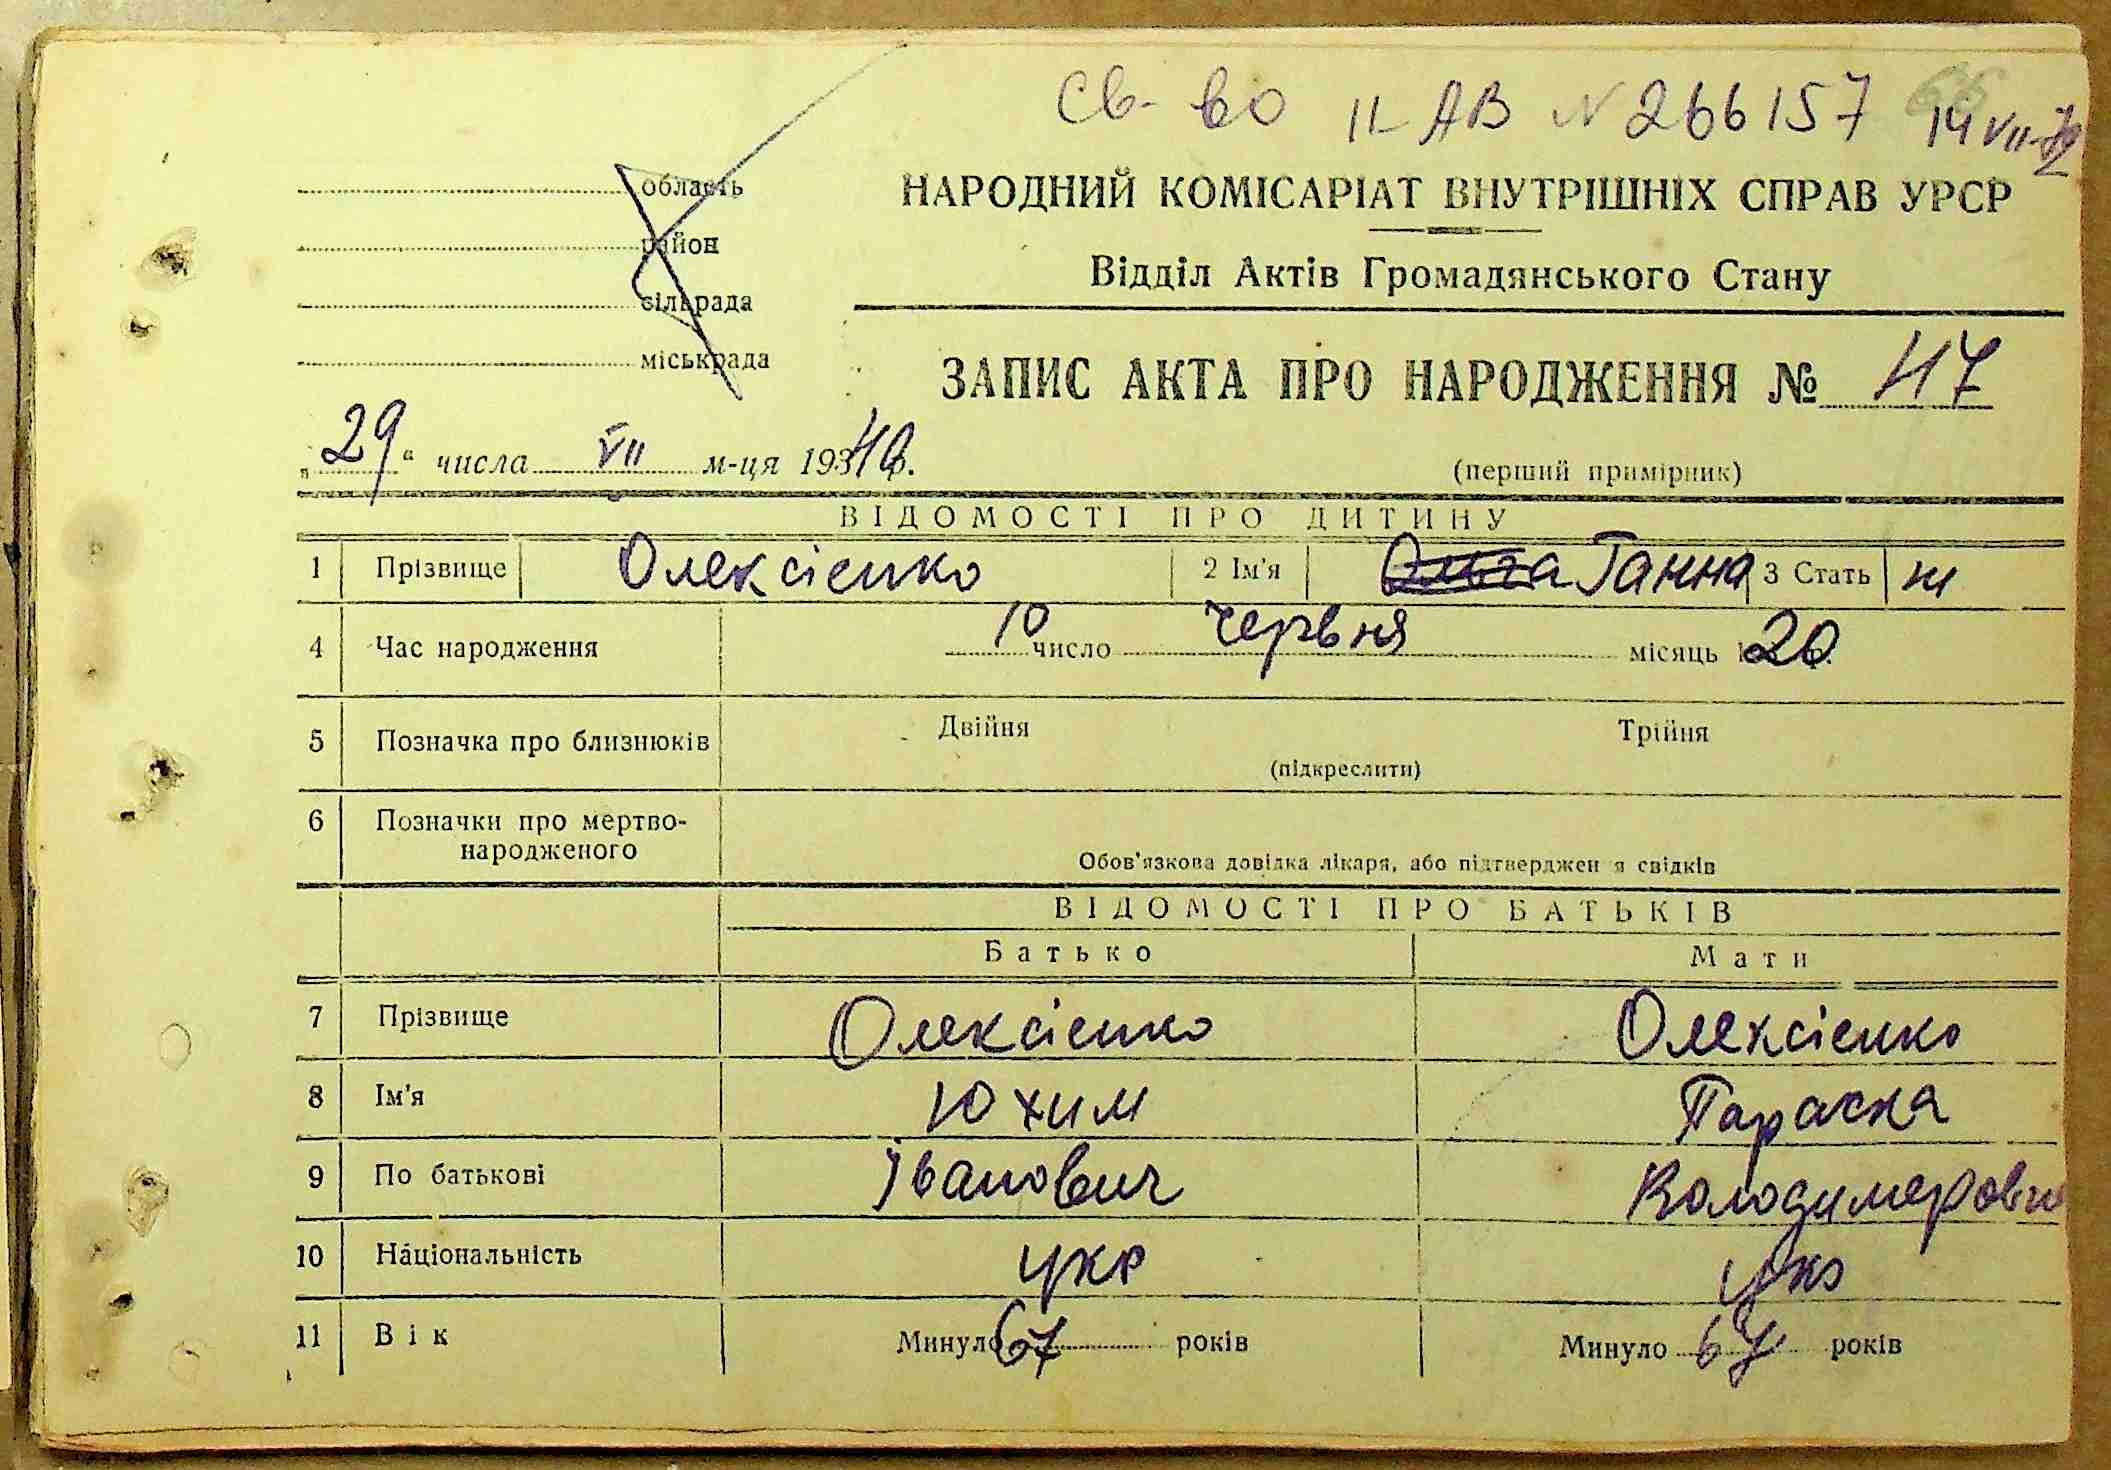 Св-во II-АВ N 266157 14 VII-72
область
район
сільрада
міськрада
НАРОДНИЙ КОМІСАРІАТ ВНУТРІШНІХ СПРАВ УРСР
Відділ Актів Громадянського Стану
ЗАПИС АКТА ПРО НАРОДЖЕННЯ № 47
„29“ числа VII м-ця 1940р.
(перший примірник)
ВІДОМОСТІ ПРО ДИТИНУ
1 Прізвище Олексієнко 2 Ім'я Ольга Ганна 3 Стать ж
4 Час народження 10 число червня місяць 20 р.
5 Позначка про близнюків Двійня Трійня
(підкреслити)
6 Позначки про мертво-
народженого
Обов'язкова довідка лікаря, або підтверджен я свідків
ВІДОМОСТІ ПРО БАТЬКІВ
Батько Мати
7 Прізвище Олексієнко Олексієнко
8 Ім'я Юхим Параска
9 По батькові Іванович
10 Національність укр укр
11 Вік Минуло 67 років Минуло років